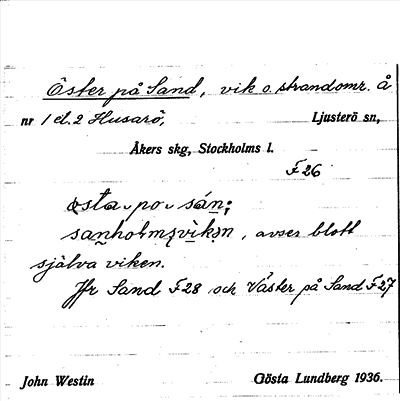 Öster på Sand, vik o. strandomr. å
nr 1 el. 2 Husarö, Ljusterö sn,
Åkers skg, Stockholms l.
F26
själva viken.
avser blott
Jfr Sand F28 och Väster på Sand F27
John Westin Gösta Lundberg 1936.